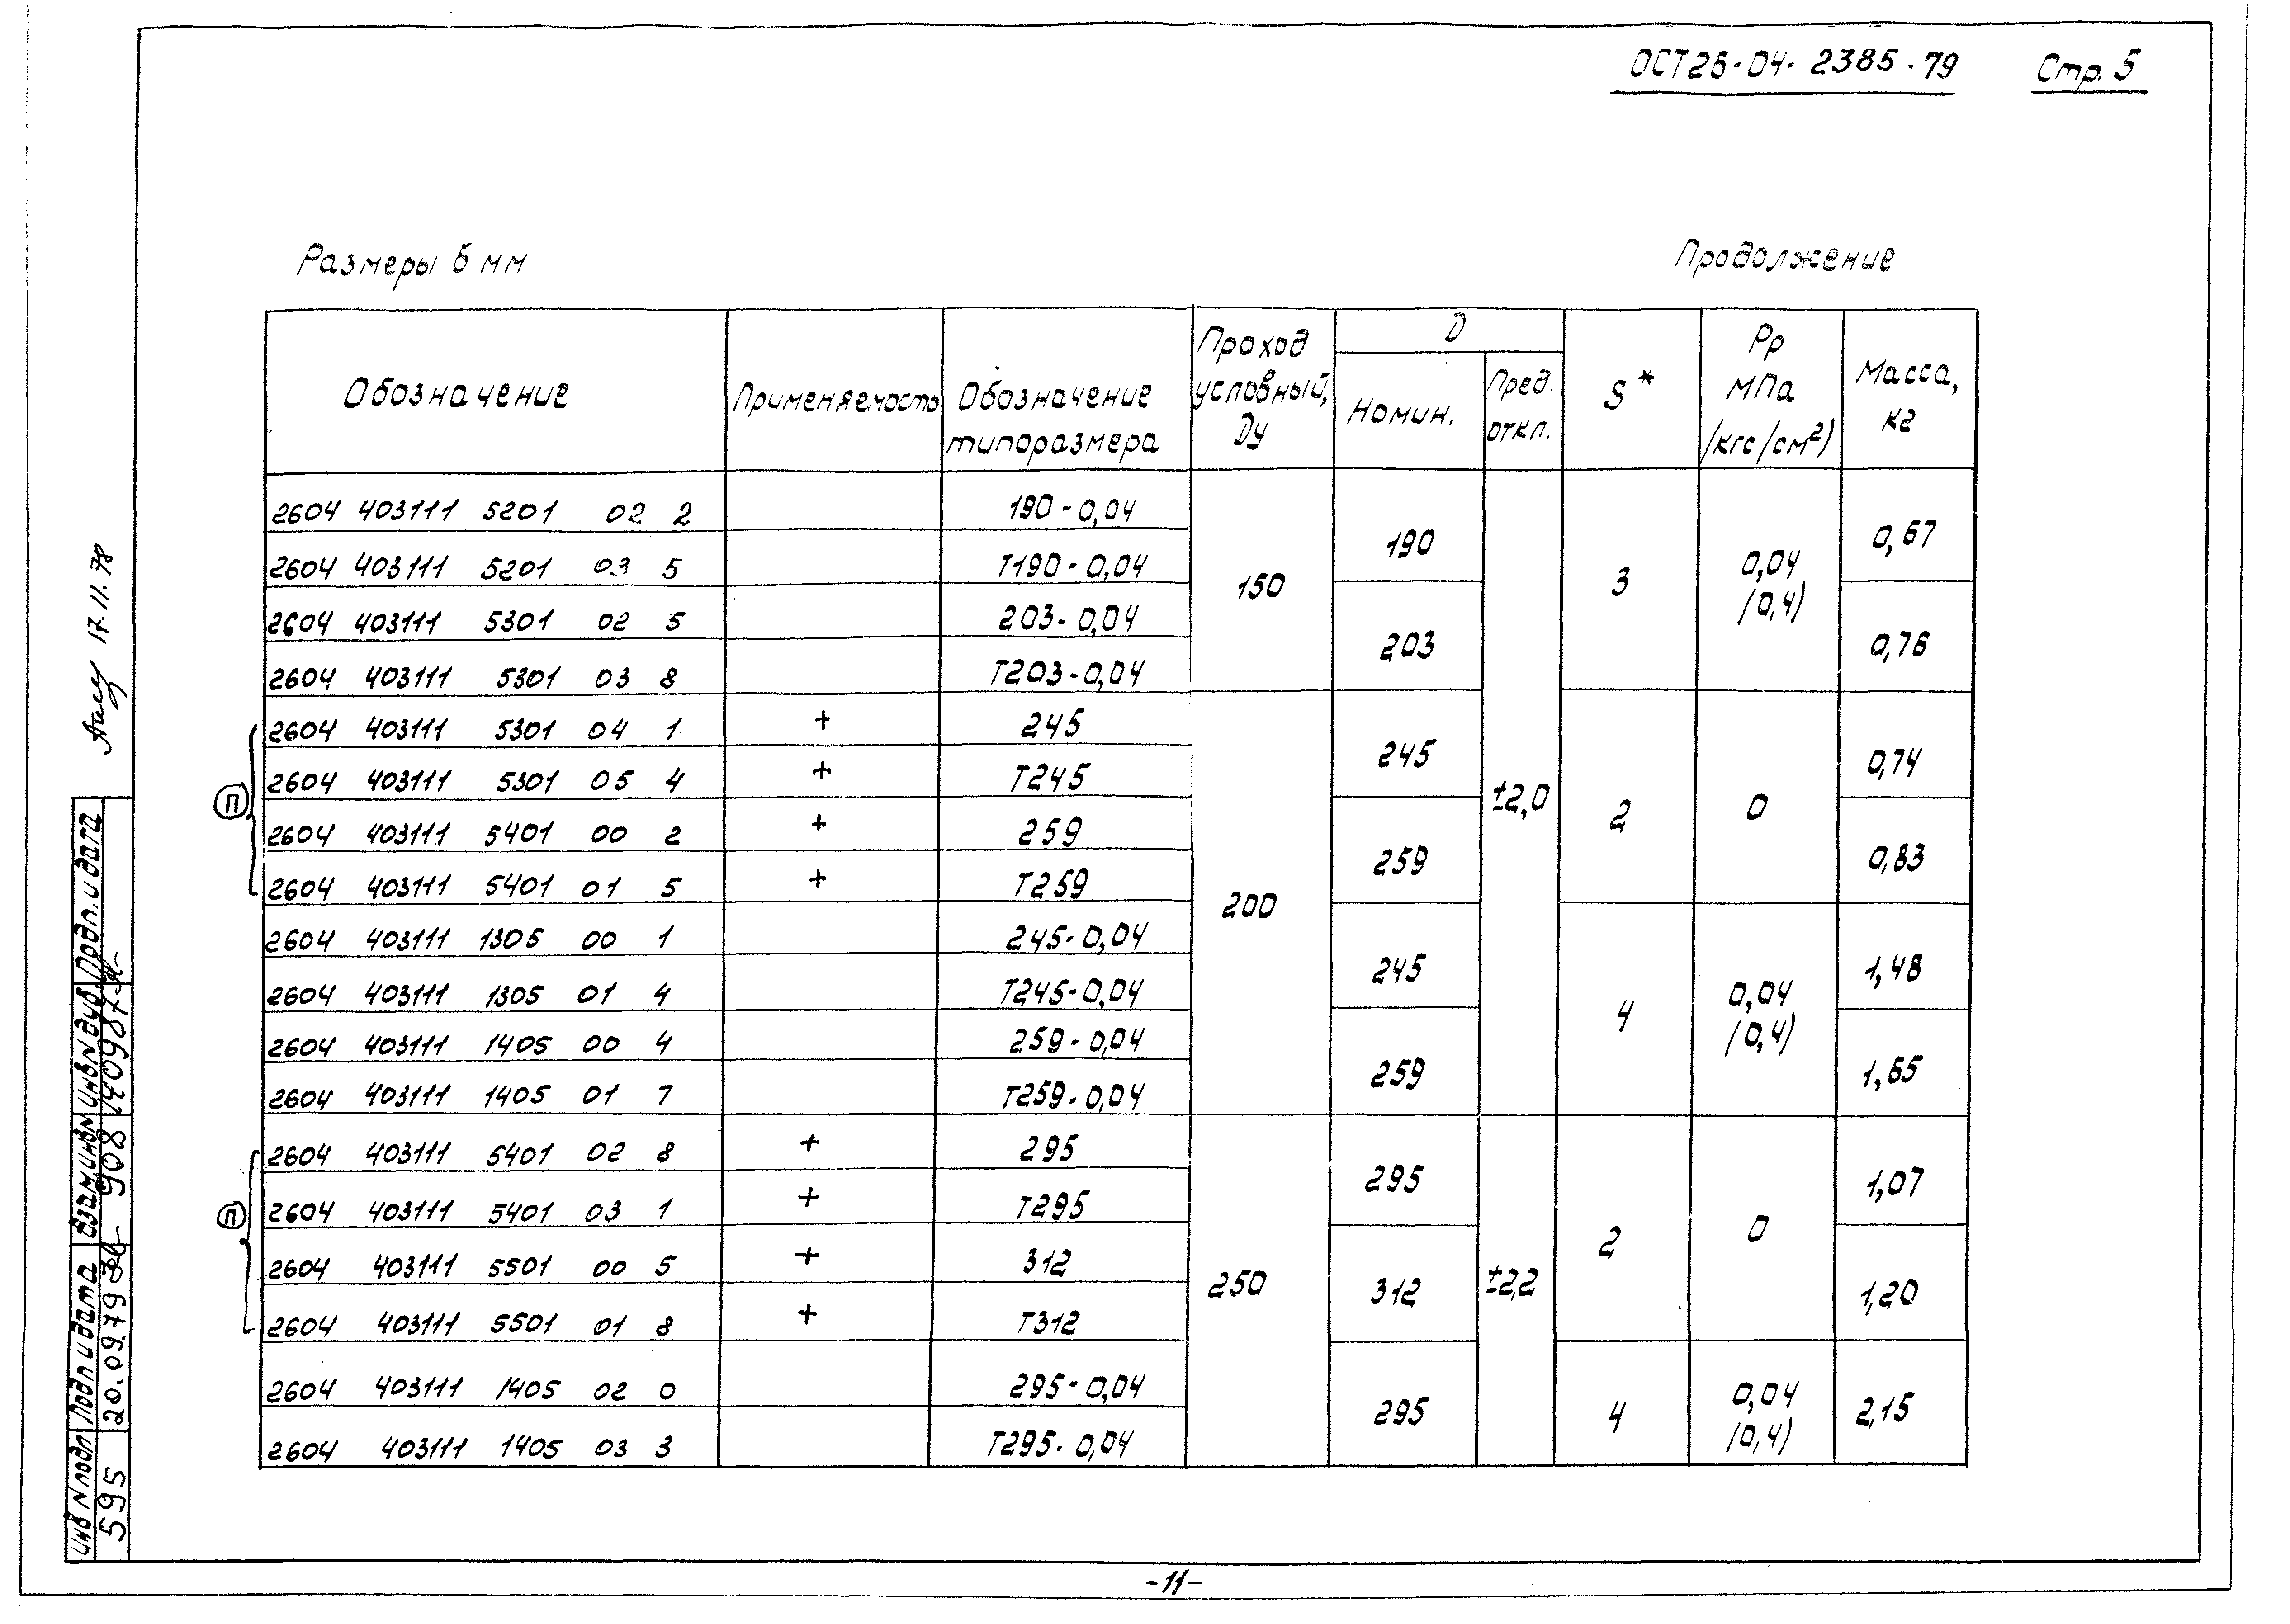 ОСТ26-04-2385-79 Стр. 5
Размеры в мм Продолжение
Обозначение Применяемость Обозначение типоразмера Проход условный, Ду D Номин. Пред. откл. S* Pр МПа (кгс/см²) Масса, кг
2604 403111 5201 02 2 190-0,04 150 190 ±2,0 3 0,04 (0,4) 0,67
2604 403111 5201 03 5 Т190-0,04
2604 403111 5301 02 5 203-0,04 203 0,76
2604 403111 5301 03 8 Т203-0,04
П
2604 403111 5301 04 1 + 245 200 245 2 0 0,74
2604 403111 5301 05 4 + Т245
2604 403111 5401 00 2 + 259 259 0,83
2604 403111 5401 01 5 + Т259
2604 403111 1305 00 1 245-0,04 245 4 0,04 (0,4) 1,48
2604 403111 1305 01 4 Т245-0,04
2604 403111 1405 00 4 259-0,04 259 1,65
2604 403111 1405 01 7 Т259-0,04
П
2604 403111 5401 02 8 + 295 250 295 ±2,2 2 0 1,07
2604 403111 5401 03 1 + Т295
2604 403111 5501 00 5 + 312 312 1,20
2604 403111 5501 01 8 + Т312
2604 403111 1405 02 0 295-0,04 295 4 0,04 (0,4) 2,15
2604 403111 1405 03 3 Т295-0,04
17.11.78
Инв N подл Подп и дата Взам инв N Инв N дуб Подп. и дата
595 20.09.79 908
-11-